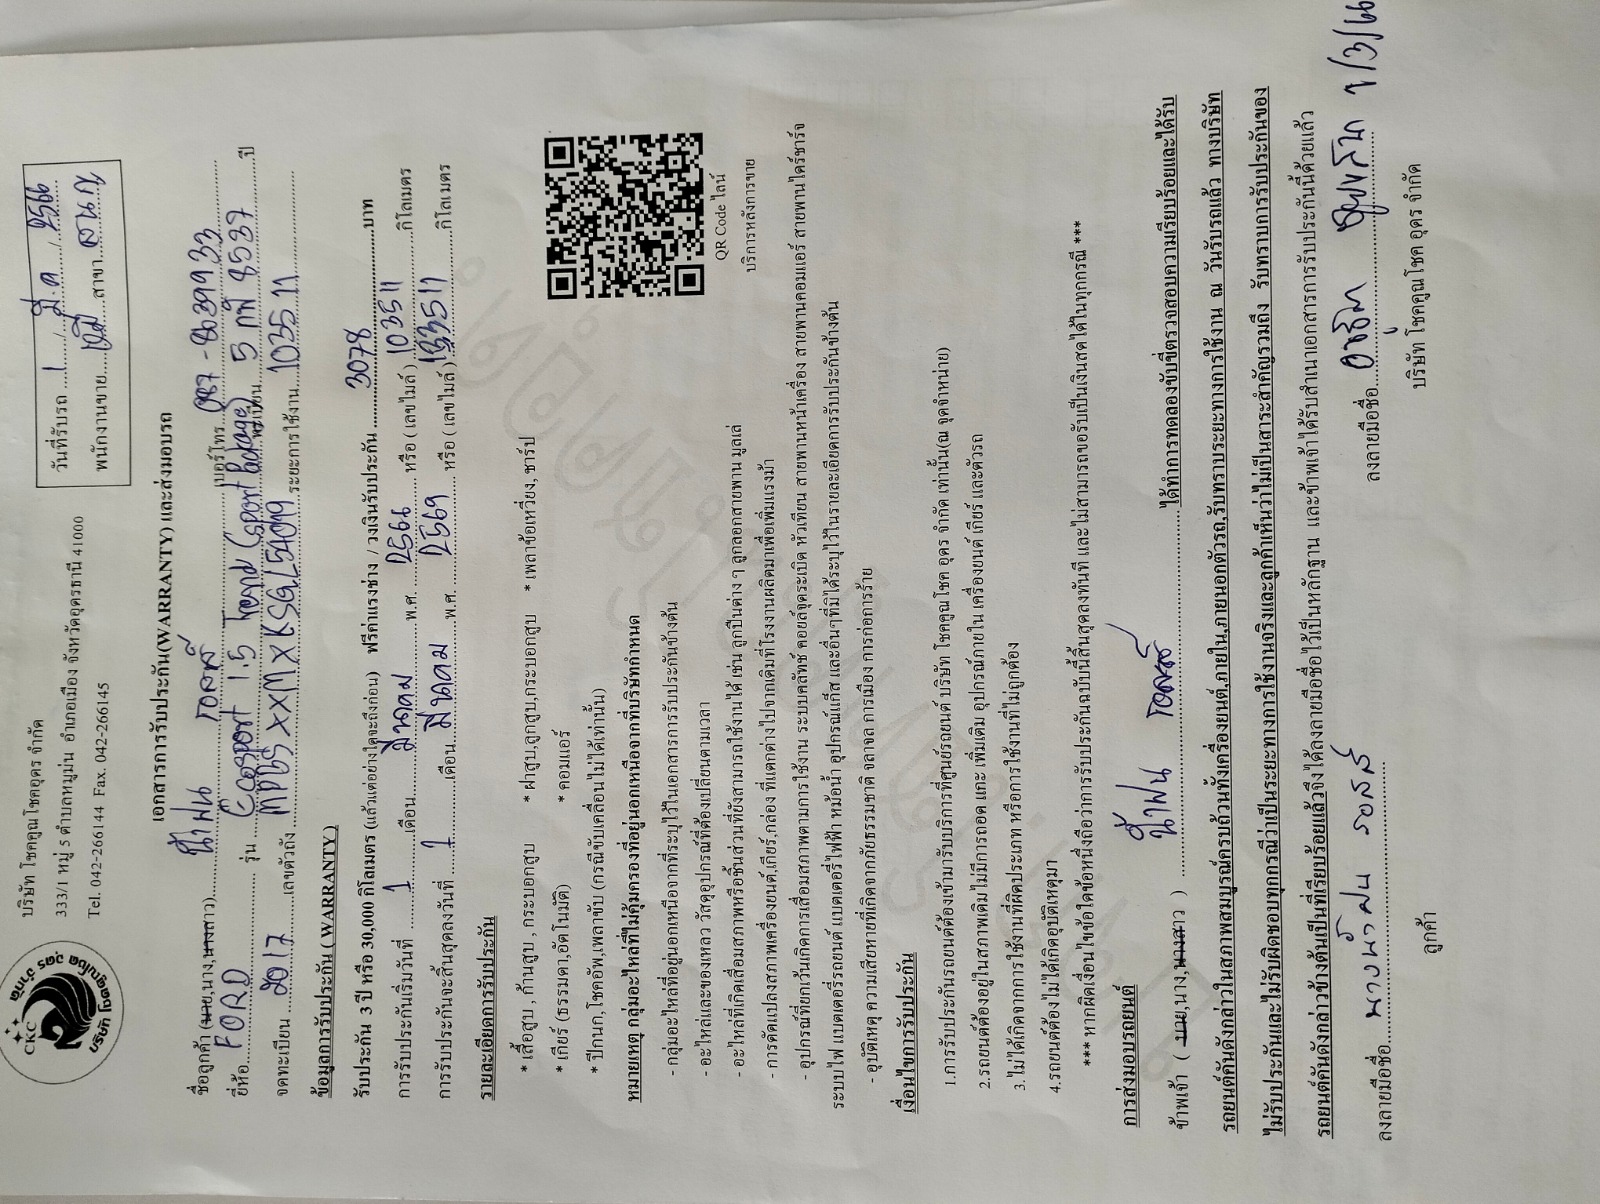 CKC
บริษัท โชคคูณโชค อุดร จำกัด
บริษัท โชคคูณโชคอุดร จำกัด
333/1 หมู่ 5 ตำบลหมูม่น อำเภอเมือง จังหวัดอุดรธานี 41000
Tel. 042-266144 Fax. 042-266145
วันที่รับรถ 1 / มี.ค / 2566
พนักงานขาย สาขา
เอกสารการรับประกัน(WARRANTY) และส่งมอบรถ
ชื่อลูกค้า (นาย,นาง,นางสาว) น้ำฝน รอสส์ เบอร์โทร 087-8039933
ยี่ห้อ FORD รุ่น Ecosport 1.5 Trend (Sport Package) ทะเบียน 5 กพ 8527 ปี
จดทะเบียน 2017 เลขตัวถัง MPBSXXMXKSGL54019 ระยะการใช้งาน 103511
ข้อมูลการรับประกัน ( WARRANTY )
รับประกัน 3 ปี หรือ 30,000 กิโลเมตร (แล้วแต่อย่างใดจะถึงก่อน) ฟรีค่าแรงช่าง / วงเงินรับประกัน 3078 บาท
การรับประกันเริ่มวันที่ 1 เดือน มีนาคม พ.ศ. 2566 หรือ ( เลขไมล์ ) 103511 กิโลเมตร
การรับประกันจะสิ้นสุดลงวันที่ 1 เดือน มีนาคม พ.ศ. 2569 หรือ ( เลขไมล์ ) 133511 กิโลเมตร
รายละเอียดการรับประกัน
* เสื้อสูบ , ก้านสูบ , กระบอกสูบ * ฝาสูบ,ลูกสูบ,กระบอกสูบ * เพลาข้อเหวี่ยง, ชาร์ป
* เกียร์ (ธรรมดา,อัตโนมัติ) * คอมแอร์
* ปีกนก,โชคอัพ,เพลาขับ (กรณีขับเคลื่อนไม่ได้เท่านั้น)
QR Code ไลน์
บริการหลังการขาย
หมายเหตุ กลุ่มอะไหล่ที่ไม่คุ้มครองที่อยู่นอกเหนือจากที่บริษัทกำหนด
- กลุ่มอะไหล่ที่อยู่นอกเหนือจากที่ระบุไว้ในเอกสารการรับประกันข้างต้น
- อะไหล่และของเหลว วัสดุอุปกรณ์ที่ต้องเปลี่ยนตามเวลา
- อะไหล่ที่เกิดเสื่อมสภาพหรือชิ้นส่วนที่ยังสามารถใช้งานได้ เช่น ลูกปืนต่าง ๆ ลูกลอกสายพาน มูเล่
- การดัดแปลงสภาพเครื่องยนต์,เกียร์,กล่อง ที่แตกต่างไปจากเดิมที่โรงงานผลิตมาเพื่อเพิ่มแรงม้า
- อุปกรณ์ที่ยกเว้นเกิดการเสื่อมสภาพตามการใช้งาน ระบบคลัทช์ คอยล์จุดระเบิด หัวเทียน สายพานหน้าเครื่อง สายพานคอมแอร์ สายพานไดร์ชาร์จ
ระบบไฟ แบตเตอรี่รถยนต์ แบตเตอรี่ไฟฟ้า หม้อน้ำ อุปกรณ์แก๊ส และอื่นๆที่มิได้ระบุไว้ในรายละเอียดการรับประกันข้างต้น
- อุบัติเหตุ ความเสียหายที่เกิดจากภัยธรรมชาติ จลาจล การเมือง การก่อการร้าย
เงื่อนไขการรับประกัน
1.การรับประกันรถยนต์ต้องเข้ามารับบริการที่ศูนย์รถยนต์ บริษัท โชคคูณโชค อุดร จำกัด เท่านั้น(ณ จุดจำหน่าย)
2.รถยนต์ต้องอยู่ในสภาพเดิมไม่มีการถอด แกะ เพิ่มเติม อุปกรณ์ภายใน เครื่องยนต์ เกียร์ และตัวรถ
3. ไม่ได้เกิดจากการใช้งานที่ผิดประเภท หรือการใช้งานที่ไม่ถูกต้อง
4.รถยนต์ต้องไม่ได้เกิดอุบัติเหตุมา
*** หากผิดเงื่อนไขข้อใดข้อหนึ่งถือว่าการรับประกันฉบับนี้สิ้นสุดลงทันที และไม่สามารถขอรับเป็นเงินสดได้ในทุกกรณี ***
การส่งมอบรถยนต์
ข้าพเจ้า ( นาย,นาง,นางสาว ) น้ำฝน รอสส์ ได้ทำการทดลองขับขี่ตรวจสอบความเรียบร้อยและได้รับ
รถยนต์คันดังกล่าวในสภาพสมบูรณ์ครบถ้วนทั้งเครื่องยนต์,ภายใน,ภายนอกตัวรถ,รับทราบระยะทางการใช้งาน ณ วันรับรถแล้ว ทางบริษัท
ไม่รับประกันและไม่รับผิดชอบทุกกรณีว่าเป็นระยะทางการใช้งานจริงและลูกค้าเห็นว่าไม่เป็นสาระสำคัญรวมถึง รับทราบการรับประกันของ
รถยนต์คันดังกล่าวข้างต้นเป็นที่เรียบร้อยแล้วจึงได้ลงลายมือชื่อไว้เป็นหลักฐาน และข้าพเจ้าได้รับสำเนาเอกสารการรับประกันนี้ด้วยแล้ว
ลงลายมือชื่อ นางน้ำฝน รอสส์
ลูกค้า
ลงลายมือชื่อ 1/3/66
บริษัท โชคคูณโชค อุดร จำกัด